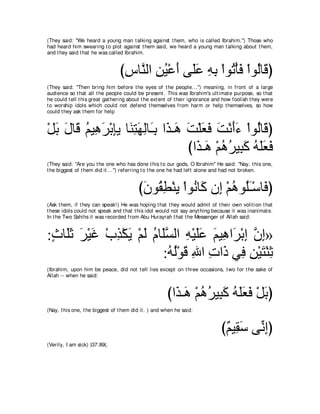 (They said: "We heard a young man talking against them, who is called Ibrahim.") Those who
had heard him swearing to plot against them said, we heard a young man talking about them,
and they said that he was called Ibrahim.
(قَالُواْ فَأْتُواْ بِهِ عَلَى أَعْيُنِ النَّاسِ)
(They said: "Then bring him before the eyes of the people...") meaning, in front of a large
audience so that all the people could be present. This was Ibrahim's ultimate purpose, so that
he could tell this great gathering about the extent of their ignorance and how foolish they were
to worship idols which could not defend themselves from harm or help themselves, so how
could they ask them for help
(قَالُواْ ءَأَنْتَ فَعَلْتَ هَـذَا بِـَالِهَتِنَا يإِبْرَهِيمُ قَالَ بَلْ
فَعَلَهُ كَبِيرُهُمْ هَـذَا)
(They said: "Are you the one who has done this to our gods, O Ibrahim" He said: "Nay, this one,
the biggest of them did it...") referring to the one he had left alone and had not broken.
(فَاسْـَلُوهُمْ إِن كَانُواْ يِنْطِقُونَ)
(Ask them, if they can speak!) He was hoping that they would admit of their own volition that
these idols could not speak and that this idol would not say anything because it was inanimate.
In the Two Sahihs it was recorded from Abu Hurayrah that the Messenger of Allah said:
«إِنَّ إِبْرَاهِيمَ عَلَيْهِ السَّلَامُ لَمْ يَكْذِبْ غَيْرَ ثَلَاثٍ:
ثِنْتَيْنِ فِي ذَاتِ اللهِ قَوْلُهُ:
(Ibrahim, upon him be peace, did not tell lies except on three occasions, two for the sake of
Allah -- when he said:
(بَلْ فَعَلَهُ كَبِيرُهُمْ هَـذَا)
(Nay, this one, the biggest of them did it. ) and when he said:
(إِنِّى سَقِيمٌ)
(Verily, I am sick) [37:89].